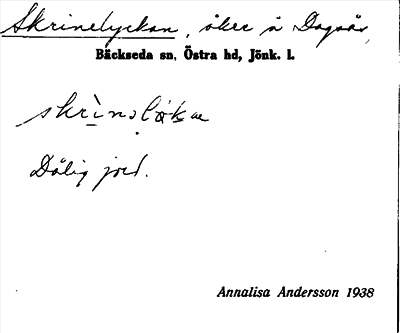 Skrinelyckan, åker å Dagsås,
Bäckseda sn, Östra hd, Jönk. l.
Dålig jord.
Annalisa Andersson 1938